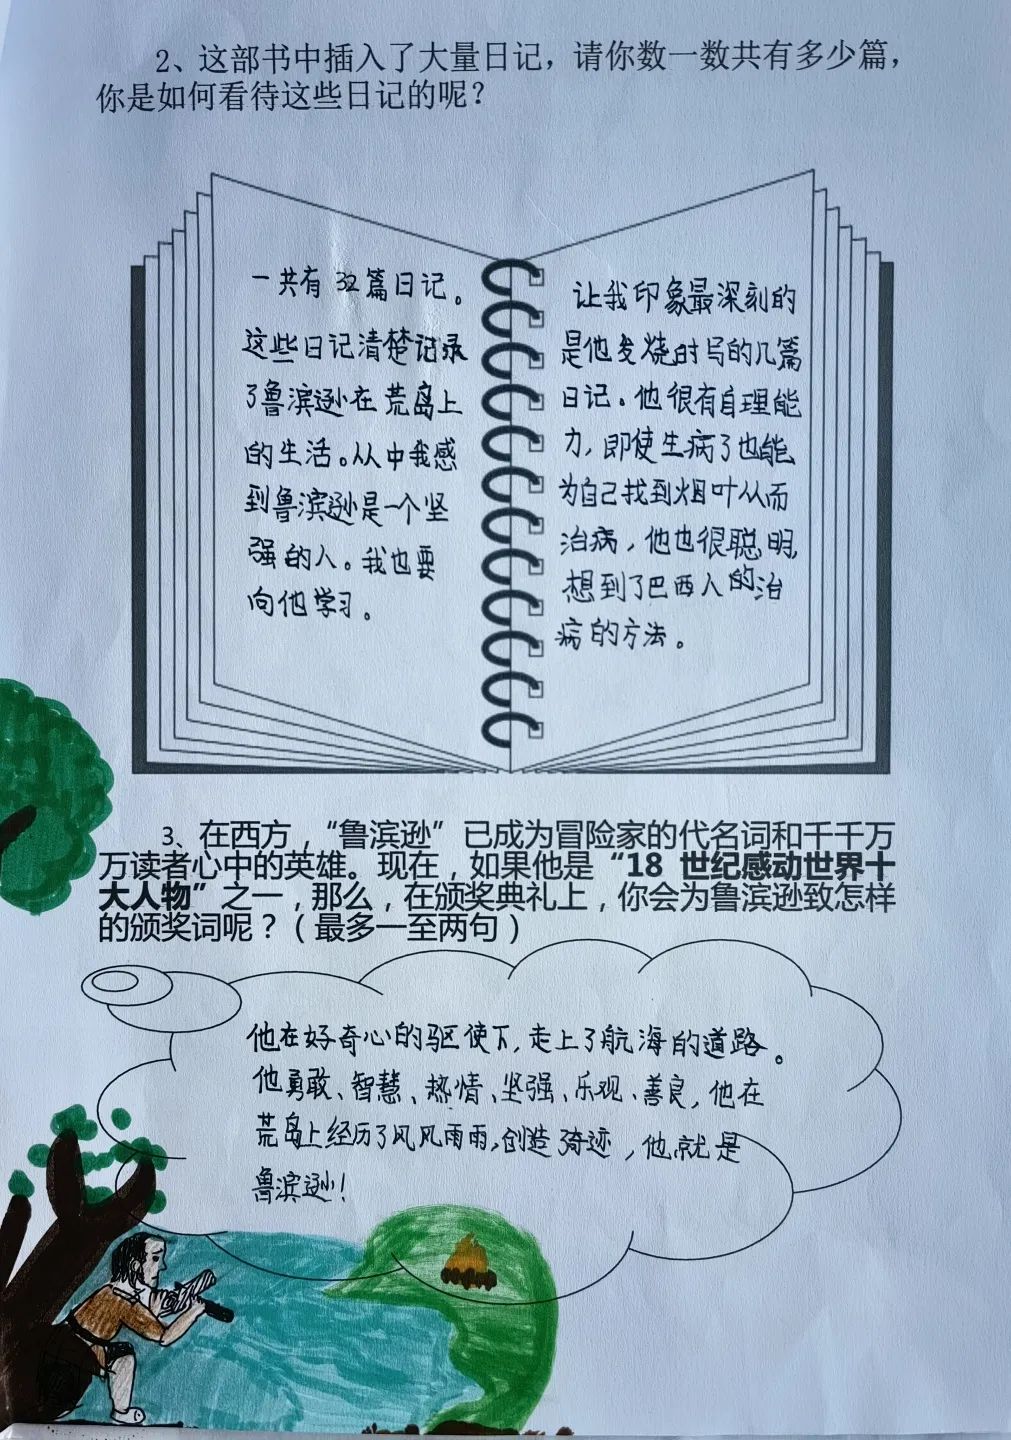 2、这部书中插入了大量日记，请你数一数共有多少篇，
你是如何看待这些日记的呢？
一共有 32篇日记。
这些日记清楚记录
了鲁滨逊在荒岛上
的生活。从中我感
到鲁滨逊是一个坚
强的人。我也要
向他学习。
让我印象最深刻的
是他发烧时写的几篇
日记。他很有自理能
力，即使生病了也能
为自己找到烟叶从而
治病，他也很聪明，
想到了巴西人的治
病的方法。
3、在西方，“鲁滨逊”已成为冒险家的代名词和千千万
万读者心中的英雄。现在，如果他是“18 世纪感动世界十
大人物”之一，那么，在颁奖典礼上，你会为鲁滨逊致怎样
的颁奖词呢？（最多一至两句）
他在好奇心的驱使下，走上了航海的道路。
他勇敢、智慧、热情、坚强、乐观、善良，他在
荒岛上经历了风风雨雨，创造奇迹，他就是
鲁滨逊！